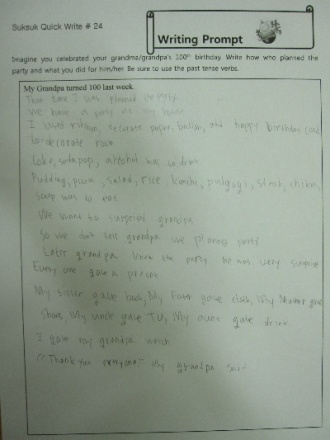 Suksuk Quick Write # 24
Writing Prompt
Imagine you celebrated your grandma/grandpa's 100th birthday. Write how who planned the
party and what you did for him/her. Be sure to use the past tense verbs.
My Grandpa turned 100 last week.
That time I was planned the party.
We have a party at my house
I used ribbon, decorate paper, ballon, and happy birthday card
to decorate room
Coke, soda pop, alcohol was to drink
Pudding, pizza, salad, rice, kimchi, pulgogi, steak, chicken,
soup was to eat
We want to surprise grandpa.
So we don't tell grandpa we planed party
Later grandpa know the party he was very surprise
Every one gave a present
My sister gave book, My Father gave clock, My Mother gave
Shoes, My uncle gave TV, My aunt gave
I gave my grandpa watch
"Thank you everyone" My grandpa said